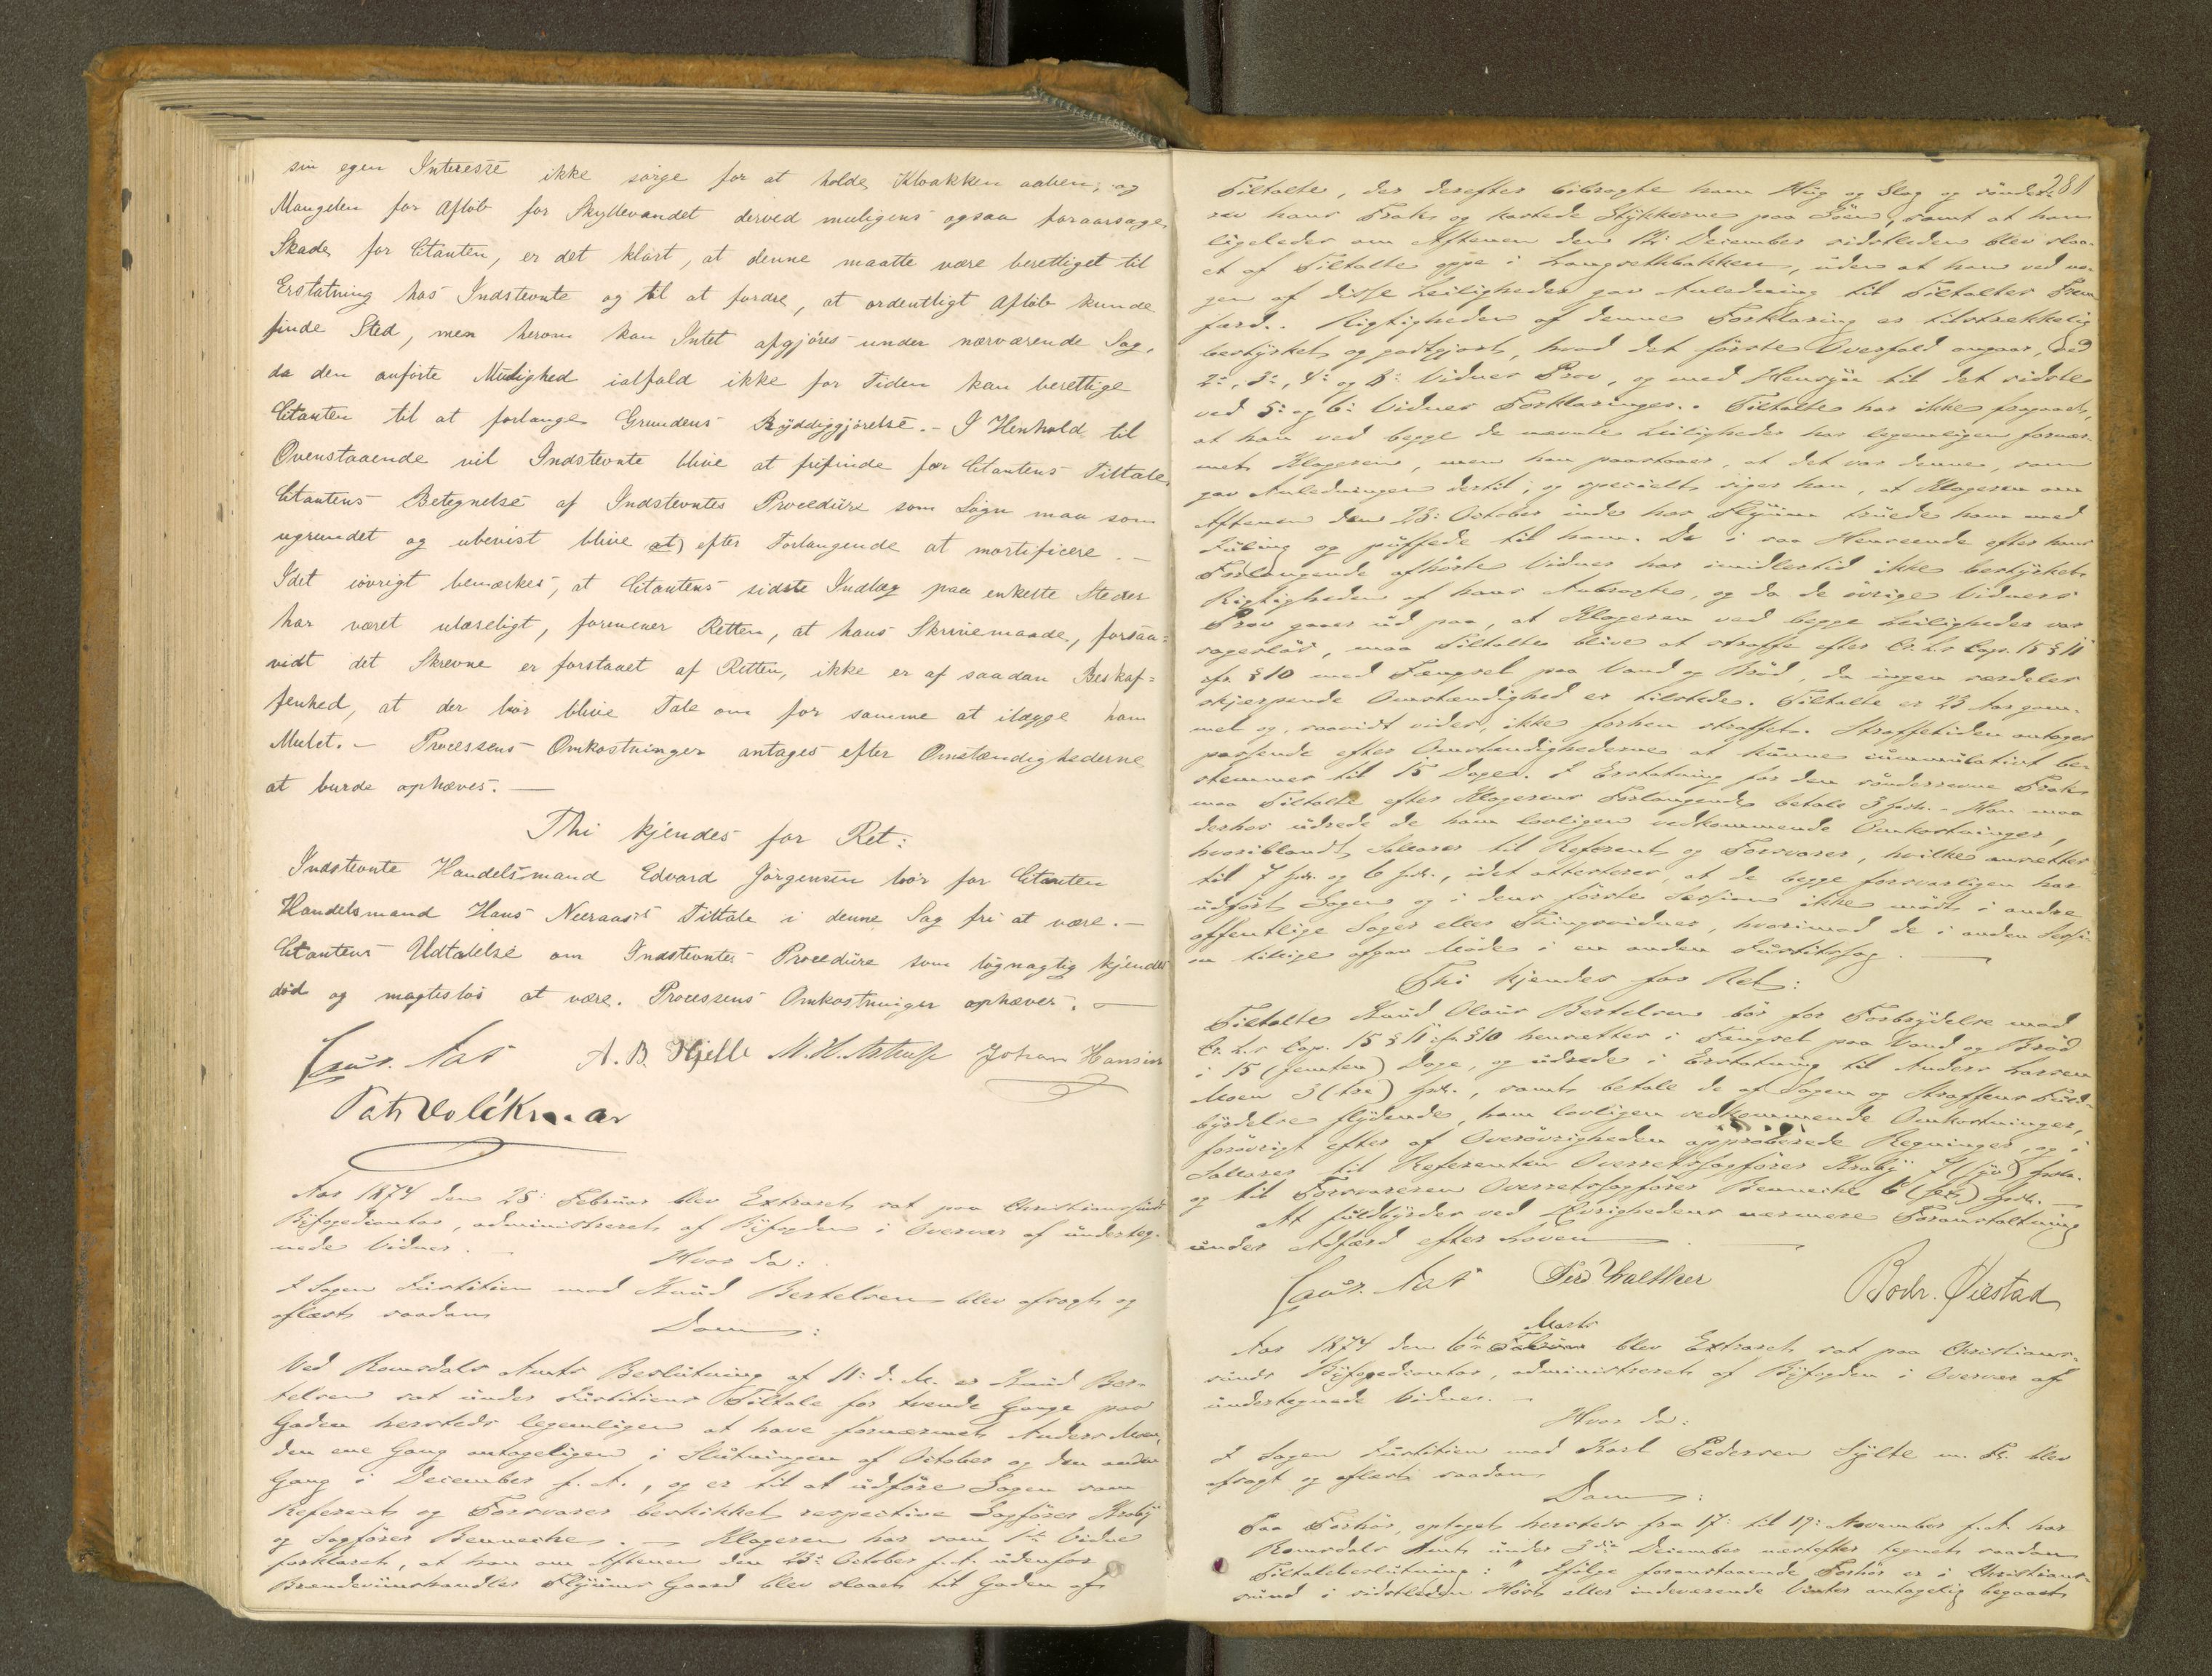 sin egen Interesse ikke sørge for at holde Kloakken aaben, og
Mangelen for Afløb for Skyllevandet derved muligens ogsaa foraarsage
Skade for Citanten, er det klart, at denne maatte være berettiget til
Erstatning hos Indstevnte og til at fordre, at ordentligt Afløb kunde
finde Sted, men herom kan Intet afgjøres under nærværende Sag,
da den anførte Mulighed ialfald ikke for Tiden kan berettige
Citanten til at forlange Grundens Ryddiggjørelse. - I Henhold til
Ovenstaaende vil Indstevnte blive at frifinde for Citantens Tiltale
Citantens Betegnelse af Indstevntes Procedüre som Løgn maa som
ugrundet og ubevist blive efter Forlangende at mortificere. -
Idet iøvrigt bemærkes, at Citantens sidste Indlæg paa enkelte Steder
har været ulæseligt, formener Retten, at hans Skrivemaade, forsaa=
vidt det Skrevne er forstaaet af Retten, ikke er af saadan Beskaf=
fenhed, at der bør blive Tale om for samme at ilægge ham
Mulct. - Processens Omkostninger antages efter Omstændighederne
at burde ophæves. -
Thi kjendes for Ret:
Indstevnte Handelsmand Edvard Jørgensen bør for Citanten
Handelsmand Hans Neeraas's Tiltale i denne Sag fri at være. -
Citantens Udtalelse om Indstevntes Procedüre som løgnagtig kjendes
død og magtesløs at være. Processens Omkostninger ophæves. -
A. B. Hjelle M. H. Astrup Johan Hansen
Aar 1874 den 25: Februar blev Extraret sat paa Christianssünds
Byfogedcontor, administreret af Byfogden i Overvær af ündertegnede
nede Vidner. -
Hvor da:
I Sagen Jüstitien mod Knüd Bertelsen blev afsagt og
aflæst saadan
Dom:
Ved Romsdals Amts Beslütning af 11: d. M. er Knüd Ber-
telsen sat ünder Jüstitiens Tiltale for tvende Gange paa
Gaden hersteds legemligen at have fornærmet Anders Moen,
den ene Gang antageligen i Slütningen af October og den anden
Gang i December f. A., og er til at üdføre Sagen som
Referent og Forsvarer beskikket respective Sagfører Kroby
og Sagfører Bennecke. - Klageren har som 1ste Vidne
forklaret, at han om Aftenen den 23: October f. A. üdenfor
Brændeviinshandler Flyüms Gaard blev slaaet til Gaden af
281
Tiltalte, der derefter bibragte ham Hüg og Slag og sønder-
rev hans Frak og kastede Stykkerne paa Søen, samt at han
ligeledes om Aftenen den 12: December sidstleden blev slaa-
et af Tiltalte oppe i Langvetkbakken, üden at han ved no-
gen af disse Leiligheder gav Anledning til Tiltaltes Frem
færd. Rigtigheden af denne Forklaring er tilstrækkelig
bestyrket og godtgjort, hvad det første Overfald angaar, ved
2:, 3:, 4: og 8: Vidners Prov, og med Hensyn til det sidste
ved 5: og 6: Vidners Forklaringer. Tiltalte har ikke fragaaet,
at han ved begge de nævnte Leiligheder har legemligen fornær-
met Klageren, men han paastaaer, at det var denne, som
gav Anledningen dertil; og specielt siger han, at Klageren om
Aftenen den 23: October inde hos Flyüm trüede ham med
Jüling og püffede til ham. De i saa Henseende efter hans
Forlangende afhørte Vidner har imidlertid ikke bestyrket
Rigtigheden af hans Anbragte, og da de øvrige Vidners
Prov gaaer üd paa, at Klageren ved begge Leiligheder var
sagesløs, maa Tiltalte blive at straffe efter Cr. L.s Cap. 15 § 11
cfr. § 10 med Fængsel paa Vand og Brød, da ingen særdeles
skjærpende Omstændighed er tilstede. Tiltalte er 23 Aar gam-
mel og, saavidt vides, ikke forhen straffet. Straffetiden antages
passende efter Omstændighederne at künne be-
stemmes til 15 Dage. I Erstatning for den sønderrevne Frak
maa Tiltalte efter Klagerens Forlangende betale 3 Spdlr. - Han maa
derhos üdrede de ham lovligen vedkommende Omkostninger,
hvoriblandt Salarer til Referent og Forsvarer, hvilke ansættes
til 7 Spdlr. og 6 Spdlr., idet attesteres, at de begge forsvarligen har
üdført Sagen og i dens første Session ikke mødt i andre
offentlige Sager eller Thingsvidner, hvorimod de i anden Sessi-
on tillige afgav Møde i en anden Jüstitssag. -
Thi kjendes for Ret:
Tiltalte Knüd Olaus Bertelsen bør for Forbrydelse mod
Cr. L.s Cap. 15 § 11 cfr. § 10 hensættes i Fængsel paa Vand og Brød
i 15 (femten) Dage, og üdrede i Erstatning til Anders Larsen
Moen 3 (tre) Spdlr., samt betale de af Sagen og Straffens Füld-
byrdelse flydende, ham lovligen vedkommende Omkostninger,
forøvrigt efter af Overøvrigheden approberede Regninger, og i
Salarer til Referenten Overretssagfører Kroby 7 (syv) Spdlr.
og til Forsvareren Overretssagfører Bennecke 6 (sex) Spdlr. -
At füldbyrdes ved Øvrighedens nærmere Foranstaltning
ünder Adfærd efter Loven
Ferd Walther Bodv. Øiestad
Marts
Aar 1874 den 6te Februar blev Extraret sat paa Christians-
sünds Byfogedcontor, administreret af Byfogden i Overvær af
ündertegnede Vidner. -
Hvor da:
I Sagen Jüstitien mod Karl Pedersen Sylte m. Fl. blev
afsagt og aflæst saadan
Dom:
Paa Forhør, optaget hersteds fra 17: til 19: November f. A. har
Romsdals Amt ünder 3die December næstefter tegnet saadan
Tiltalebeslütning: "Ifølge foranstaaende Forhør er i Christian-
sünd i sidstleden Høst eller indeværende Vinter antagelig begaaet